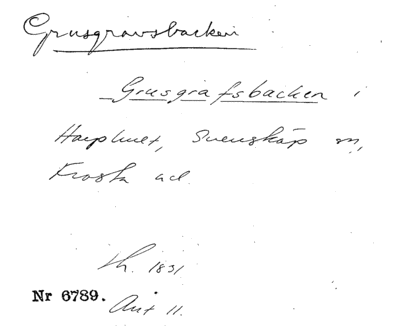 Grusgravsbacken
Grusgrafsbacken i
Harphult, Svensköp sn,
Frosta hd.
Lh. 1831
Nr 6789. Akt 11.